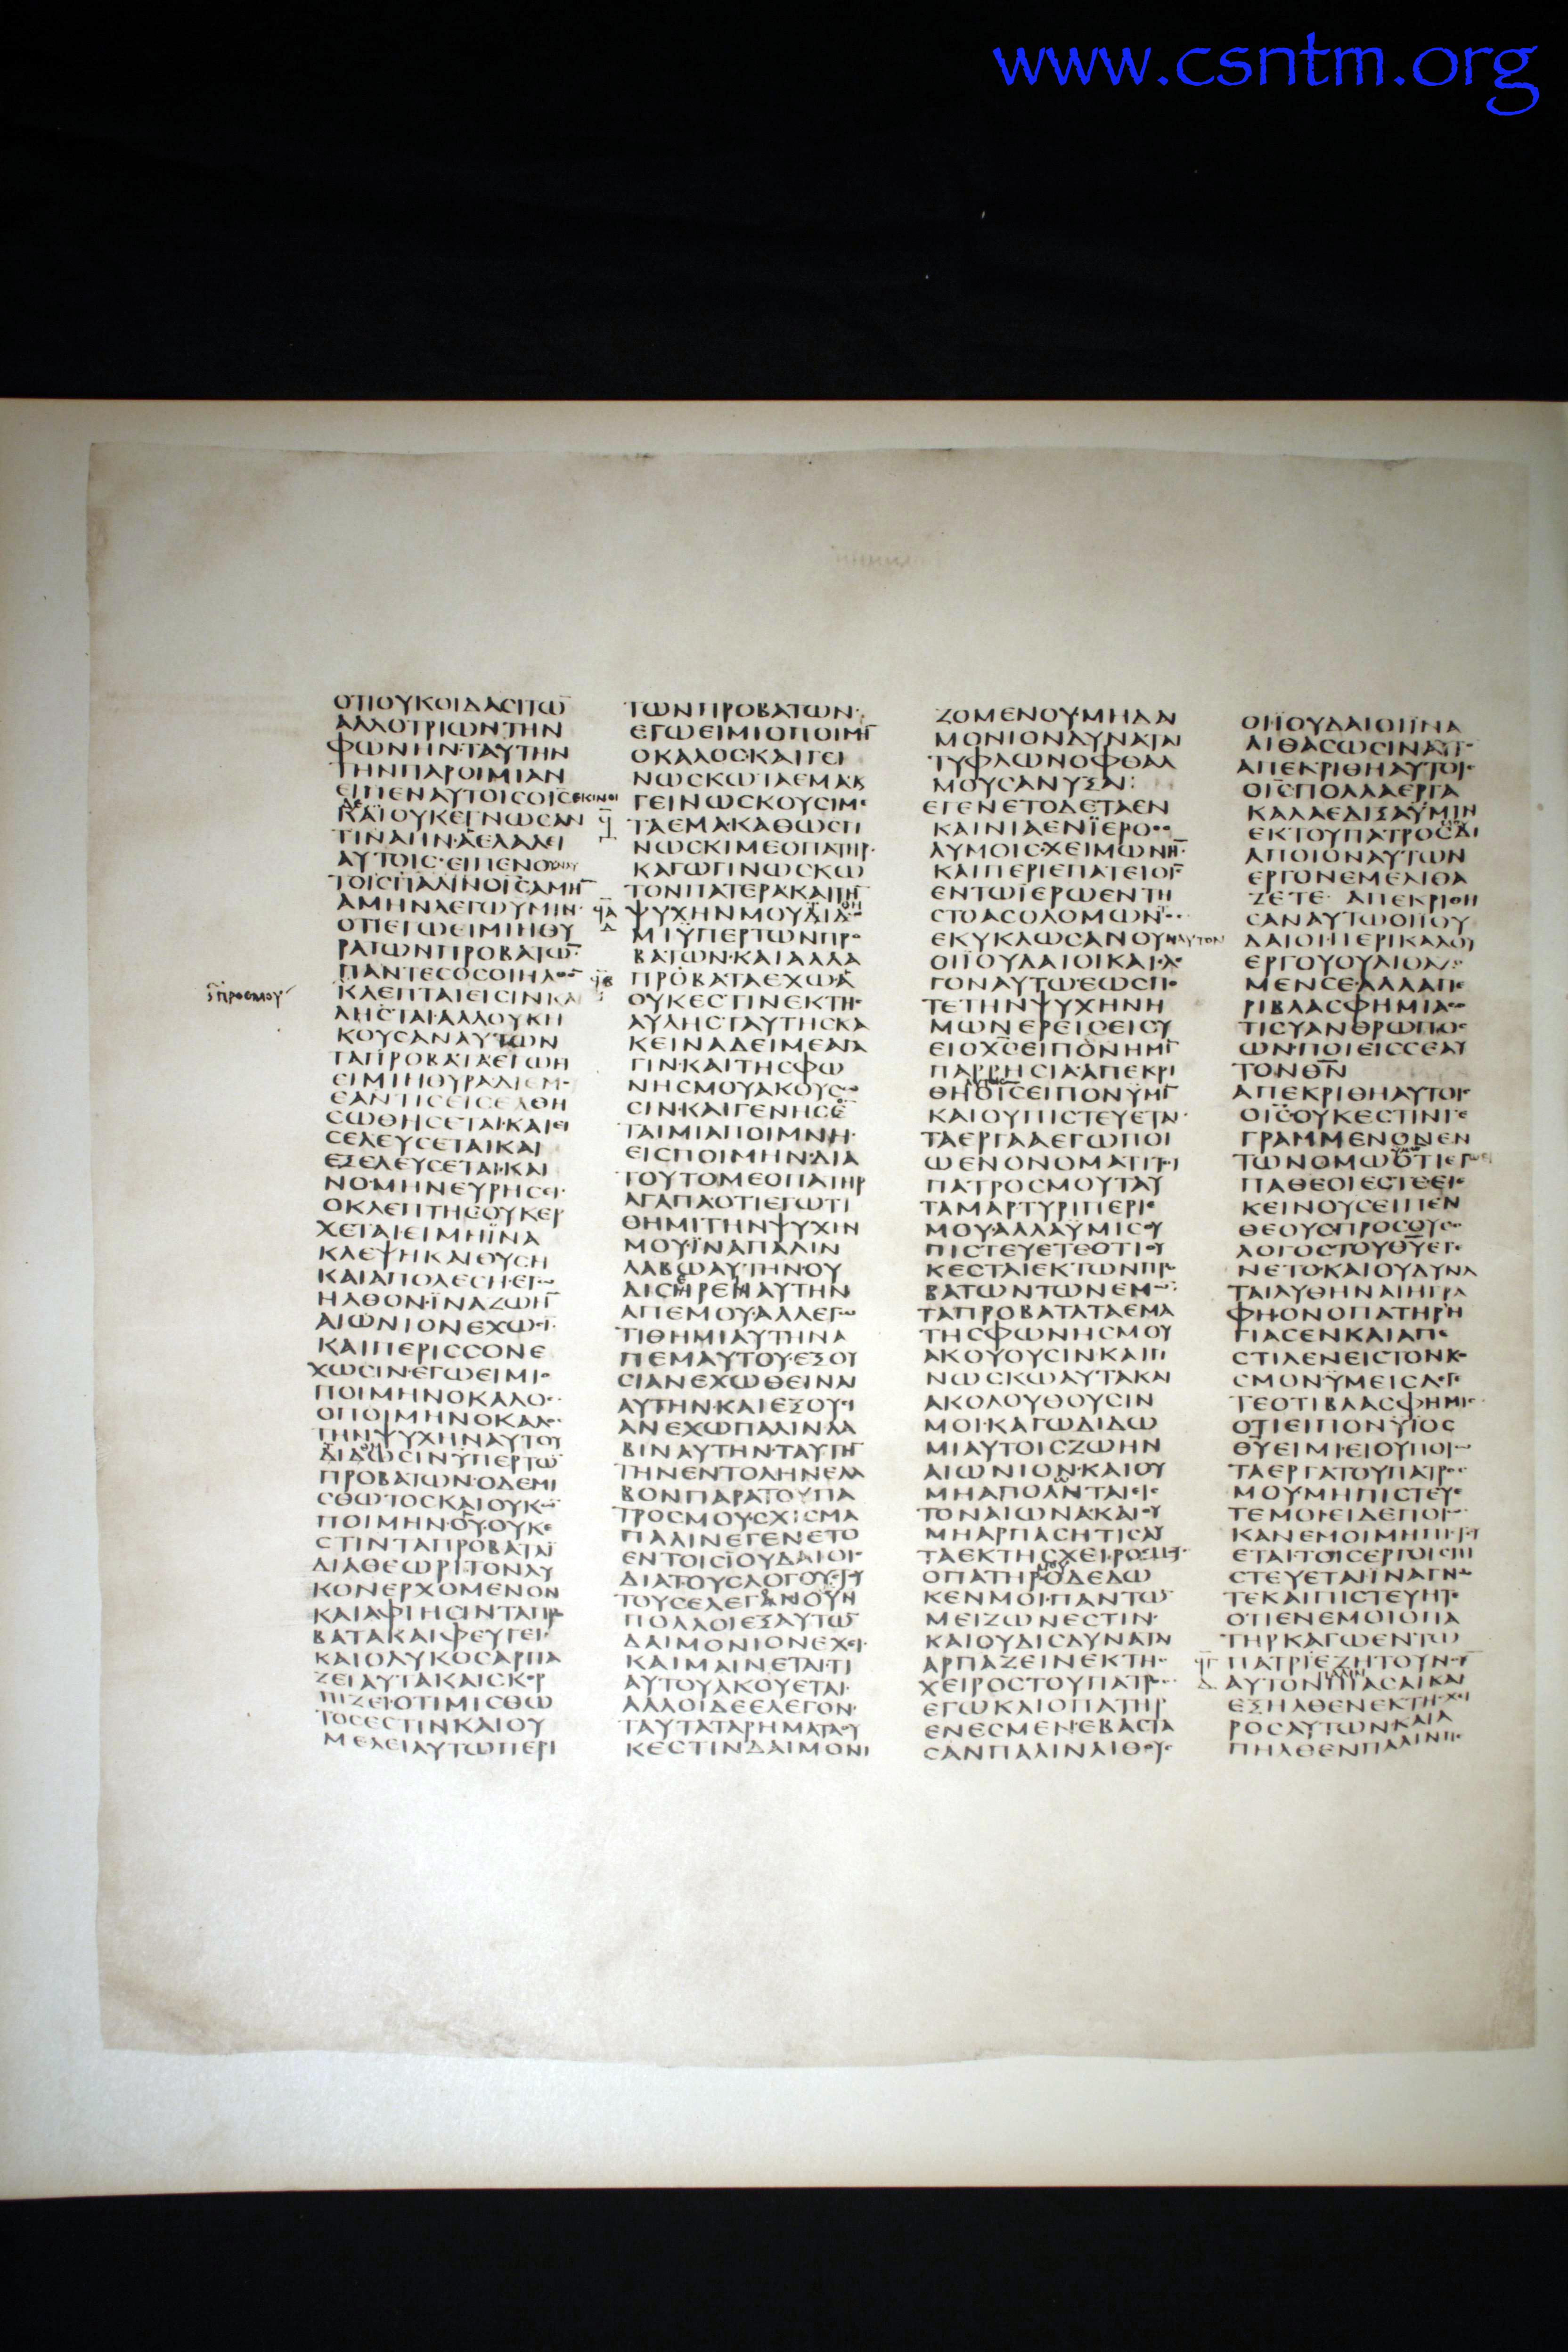 www.csntm.org
ΟΤΙΟΥΚΟΙΔΑϹΙΤΩ̅
ΑΛΛΟΤΡΙΩΝ·ΤΗΝ
ΦΩΝΗΝ·ΤΑΥΤΗΝ
ΤΗΝΠΑΡΟΙΜΙΑΝ
ΕΙΠΕΝΑΥΤΟΙϹΟΙ̅Ϲ̅
ΚΑΙΟΥΚΕΓΝΩϹΑΝ
ΑΥΤΟΙϹ·ΕΙΠΕΝΟΥΝ
ΑΜΗΝΛΕΓΩΥΜΙΝ·
ΟΤΙΕΓΩΕΙΜΙΗΘΥ
ΡΑΤΩΝΠΡΟΒΑΤΩ̅
ΚΛΕΠΤΑΙΕΙϹΙΝΚΑΙ
ΛΗϹΤΑΙ·ΑΛΛΟΥΚΗ
ΚΟΥϹΑΝΑΥΤΩΝ
ΤΑΠΡΟΒΑΤΑΕΓΩΗ
ϹΩΘΗϹΕΤΑΙ·ΚΑΙΕΙ
ϹΕΛΕΥϹΕΤΑΙΚΑΙ
ΕΞΕΛΕΥϹΕΤΑΙ·ΚΑΙ
ΝΟ·ΜΗΝΕΥΡΗϹΕΙ·
ΟΚΛΕΠΤΗϹΟΥΚΕΡ
ΧΕΤΑΙΕΙΜΗΪΝΑ
ΚΛΕΨΗΚΑΙΘΥϹΗ
ΚΑΙΑΠΟΛΕϹΗ·ΕΓΩ
ΗΛΘΟΝ·ΪΝΑΖΩΗ̅
ΑΙΩΝΙΟΝΕΧΩϹΙ
ΚΑΙΠΕΡΙϹϹΟΝΕ
ΧΩϹΙΝ·ΕΓΩΕΙΜΙΟ
ΠΟΙΜΗΝΟΚΑΛΟϹ
ΟΠΟΙΜΗΝΟΚΑΛΟϹ
ΤΗΝΨΥΧΗΝΑΥΤΟΥ
ΔΙΔΩϹΙΝΥΠΕΡΤΩ̅
ΠΡΟΒΑΤΩΝ·ΟΔΕΜΙ
ϹΘΩΤΟϹΚΑΙΟΥΚΩ̅
ΠΟΙΜΗΝ·ΟΥ·ΟΥΚΕ
ϹΤΙΝΤΑΠΡΟΒΑΤΑΪ
ΔΙΑΘΕΩΡΙΤΟΝΛΥ
ΚΟΝΕΡΧΟΜΕΝΟΝ
ΚΑΙΑΦΙΗϹΙΝΤΑΠΡΟ
ΒΑΤΑΚΑΙΦΕΥΓΕΙ·
ΚΑΙΟΛΥΚΟϹΑΡΠΑ
ΖΕΙΑΥΤΑΚΑΙϹΚΟΡ
ΠΙΖΕΙ·ΟΤΙΜΙϹΘΩ
ΤΟϹΕϹΤΙΝΚΑΙΟΥ
ΜΕΛΕΙΑΥΤΩΠΕΡΙ
ΤΩΝΠΡΟΒΑΤΩΝ·
ΕΓΩΕΙΜΙΟΠΟΙΜΗ̅
ΟΚΑΛΟϹ·ΚΑΙΓΕΙ
ΝΩϹΚΩΤΑΕΜΑΚΑΙ
ΓΕΙΝΩϹΚΟΥϹΙΜΕ
ΤΑΕΜΑ·ΚΑΘΩϹΓΙ
ΝΩϹΚΙΜΕΟΠΑΤΗΡ·
ΚΑΓΩΓΙΝΩϹΚΩ
ΤΟΝΠΑΤΕΡΑ·ΚΑΙΤΗ̅
ΨΥΧΗΝΜΟΥΔΙΔΩ
ΜΙΫΠΕΡΤΩΝΠΡΟ
ΒΑΤΩΝ·ΚΑΙΑΛΛΑ
ΠΡΟΒΑΤΑΕΧΩ·Α
ΟΥΚΕϹΤΙΝΕΚΤΗϹ
ΑΥΛΗϹ·ΤΑΥΤΗϹΚΑ
ΚΕΙΝΑΔΕΙΜΕΑΓΑ
ΓΙΝ·ΚΑΙΤΗϹΦΩ
ΝΗϹΜΟΥΑΚΟΥϹΩ
ϹΙΝ·ΚΑΙΓΕΝΗϹΕ
ΤΑΙΜΙΑΠΟΙΜΝΗ·
ΕΙϹΠΟΙΜΗΝ·ΔΙΑ
ΤΟΥΤΟΜΕΟΠΑΤΗΡ
ΑΓΑΠΑΟΤΙΕΓΩΤΙ
ΘΗΜΙΤΗΝΨΥΧΗΝ
ΜΟΥ·ΪΝΑΠΑΛΙΝ
ΛΑΒΩΑΥΤΗΝ·ΟΥ
ΔΙϹΗΡΕΝΑΥΤΗΝ
ΑΠΕΜΟΥ·ΑΛΛΕΓΩ
ΤΙΘΗΜΙΑΥΤΗΝΑ
ΠΕΜΑΥΤΟΥ·ΕΞΟΥ
ϹΙΑΝΕΧΩΘΕΙΝΑΙ
ΑΥΤΗΝ·ΚΑΙΕΞΟΥϹΙ
ΑΝΕΧΩΠΑΛΙΝΛΑ
ΒΙΝΑΥΤΗΝ·ΤΑΥΤΗ̅
ΤΗΝΕΝΤΟΛΗΝΕΛΑ
ΒΟΝΠΑΡΑΤΟΥΠΑ
ΤΡΟϹΜΟΥ·ϹΧΙϹΜΑ
ΠΑΛΙΝΕΓΕΝΕΤΟ
ΕΝΤΟΙϹΙΟΥΔΑΙΟΙϹ
ΔΙΑΤΟΥϹΛΟΓΟΥϹΤΥ
ΠΟΛΛΟΙΕΞΑΥΤΩ̅
ΔΑΙΜΟΝΙΟΝΕΧΕΙ·
ΚΑΙΜΑΙΝΕΤΑΙ·ΤΙ
ΑΥΤΟΥΑΚΟΥΕΤΑΙ·
ΑΛΛΟΙΔΕΕΛΕΓΟΝ·
ΤΑΥΤΑΤΑΡΗΜΑΤΑΟΥ
ΚΕϹΤΙΝΔΑΙΜΟΝΙ
ΖΟΜΕΝΟΥ·ΜΗΔΑΙ
ΜΟΝΙΟΝΔΥΝΑΤΑΙ
ΤΥΦΛΩΝΟΦΘΑΛ
ΜΟΥϹΑΝΥΞΑΙ:
ΕΓΕΝΕΤΟΔΕΤΑΕΝ
ΚΑΙΝΙΑΕΝΪΕΡΟϹΟ
ΛΥΜΟΙϹ·ΧΕΙΜΩΝΗ̅·
ΚΑΙΠΕΡΙΕΠΑΤΕΙΟΙ̅Ϲ̅
ΕΝΤΩΪΕΡΩΕΝΤΗ
ϹΤΟΑϹΟΛΟΜΩΝΟϹ
ΕΚΥΚΛΩϹΑΝΟΥΝΑΥΤΟΝ
ΟΙΪΟΥΔΑΙΟΙΚΑΙΕΛΕ
ΓΟΝΑΥΤΩ·ΕΩϹΠΟ
ΤΕΤΗΝΨΥΧΗΝΗ
ΜΩΝΕΡΕΙϹ·ΕΙϹΥ
ΕΙΟΧ̅Ϲ̅ΕΙΠΟΝΗΜΙ̅
ΠΑΡΡΗϹΙΑ·ΑΠΕΚΡΙ
ΚΑΙΟΥΠΙϹΤΕΥΕΤΑΙ·
ΤΑΕΡΓΑΑΕΓΩΠΟΙ
ΩΕΝΟΝΟΜΑΤΙΤΟΥ
ΠΑΤΡΟϹΜΟΥΤΑΥ
ΤΑΜΑΡΤΥΡΙΠΕΡΙΕ
ΜΟΥ·ΑΛΛΑΫΜΙϹΟΥ
ΠΙϹΤΕΥΕΤΕΟΤΙΟΥ
ΚΕϹΤΑΙΕΚΤΩΝΠΡΟ
ΒΑΤΩΝΤΩΝΕΜΩΝ:
ΤΑΠΡΟΒΑΤΑΤΑΕΜΑ
ΤΗϹΦΩΝΗϹΜΟΥ
ΑΚΟΥΟΥϹΙΝΚΑΓΙ
ΝΩϹΚΩΑΥΤΑΚΑΙ
ΑΚΟΛΟΥΘΟΥϹΙΝ
ΜΟΙ·ΚΑΓΩΔΙΔΩ
ΜΙΑΥΤΟΙϹΖΩΗΝ
ΑΙΩΝΙΟΝ·ΚΑΙΟΥ
ΜΗΑΠΟΛΝΤΑΙΕΙϹ
ΤΟΝΑΙΩΝΑ·ΚΑΙΟΥ
ΜΗΑΡΠΑϹΗΤΙϹΑΥ
ΤΑΕΚΤΗϹΧΕΙΡΟϹΜΟΥ
ΟΠΑΤΗΡΟΔΕΔΩ
ΚΕΝΜΟΙ·ΠΑΝΤΩ̅
ΜΕΙΖΩΝΕϹΤΙΝ·
ΚΑΙΟΥΔΙϹΔΥΝΑΤΑΙ
ΑΡΠΑΖΕΙΝΕΚΤΗϹ
ΧΕΙΡΟϹΤΟΥΠΑΤΡΟϹ
ΕΓΩΚΑΙΟΠΑΤΗΡ
ΕΝΕϹΜΕΝ·ΕΒΑϹΤΑ
ϹΑΝΠΑΛΙΝΛΙΘΟΥϹ
ΟΙΪΟΥΔΑΙΟΙΪΝΑ
ΛΙΘΑϹΩϹΙΝΑΥΤΟ̅
ΑΠΕΚΡΙΘΗΑΥΤΟΙϹ
ΟΙ̅Ϲ̅ΠΟΛΛΑΕΡΓΑ
ΚΑΛΑΕΔΙΞΑΫΜΙΝ
ΕΚΤΟΥΠΑΤΡΟϹΔΙ
ΑΠΟΙΟΝΑΥΤΩΝ
ΕΡΓΟΝΕΜΕΛΙΘΑ
ΖΕΤΕ· ΑΠΕΚΡΙΘΗ
ϹΑΝΑΥΤΩΟΙΪΟΥ
ΔΑΙΟΙ·ΠΕΡΙΚΑΛΟΥ
ΕΡΓΟΥΟΥΛΙΘΑΖΟ
ΜΕΝϹΕ·ΑΛΛΑΠΕ
ΡΙΒΛΑϹΦΗΜΙΑϹΟ
ΤΙϹΥΑΝΘΡΩΠΟϹ
ΩΝ·ΠΟΙΕΙϹϹΕΑΥ
ΤΟΝΘ̅Ν̅
ΑΠΕΚΡΙΘΗΑΥΤΟΙϹ
ΟΙ̅Ϲ̅·ΟΥΚΕϹΤΙΝΓΕ
ΓΡΑΜΜΕΝΟΝΕΝ
ΚΕΙΝΟΥϹΕΙΠΕΝ
ΘΕΟΥϹΠΡΟϹΟΥϹΟ
ΛΟΓΟϹΤΟΥΘ̅Υ̅ΕΓΕ
ΝΕΤΟ·ΚΑΙΟΥΔΥΝΑ
ΤΑΙΛΥΘΗΝΑΙΗΓΡΑ
ΦΗΟΝΟΠΑΤΗΡΗ
ΓΙΑϹΕΝΚΑΙΑΠΕ
ϹΤΙΛΕΝΕΙϹΤΟΝΚΟ
ϹΜΟΝΫΜΕΙϹΛΕΓΕ
ΤΕΟΤΙΒΛΑϹΦΗΜΕΙϹ
ΟΤΙΕΙΠΟΝΥΪΟϹ
Θ̅Υ̅ΕΙΜΙ·ΕΙΟΥΠΟΙΩ
ΤΑΕΡΓΑΤΟΥΠΑΤΡΟϹ
ΜΟΥΜΗΠΙϹΤΕΥΕ
ΤΕΜΟΙ·ΕΙΔΕΠΟΙΩ
ΚΑΝΕΜΟΙΜΗΠΙϹΤΕΥ
ΕΤΑΙΤΟΙϹΕΡΓΟΙϹΠΙ
ϹΤΕΥΕΤΑΙΪΝΑΓΝΩ
ΤΕΚΑΙΠΙϹΤΕΥΗΤΕ
ΟΤΙΕΝΕΜΟΙΟΠΑ
ΤΗΡΚΑΓΩΕΝΤΩ
ΠΑΤΡΙΕΖΗΤΟΥΝΟΥ̅
ΕΞΗΛΘΕΝΕΚΤΗϹΧΕΙ
ΡΟϹΑΥΤΩΝ·ΚΑΙΑ
ΠΗΛΘΕΝΠΑΛΙΝΠΕ